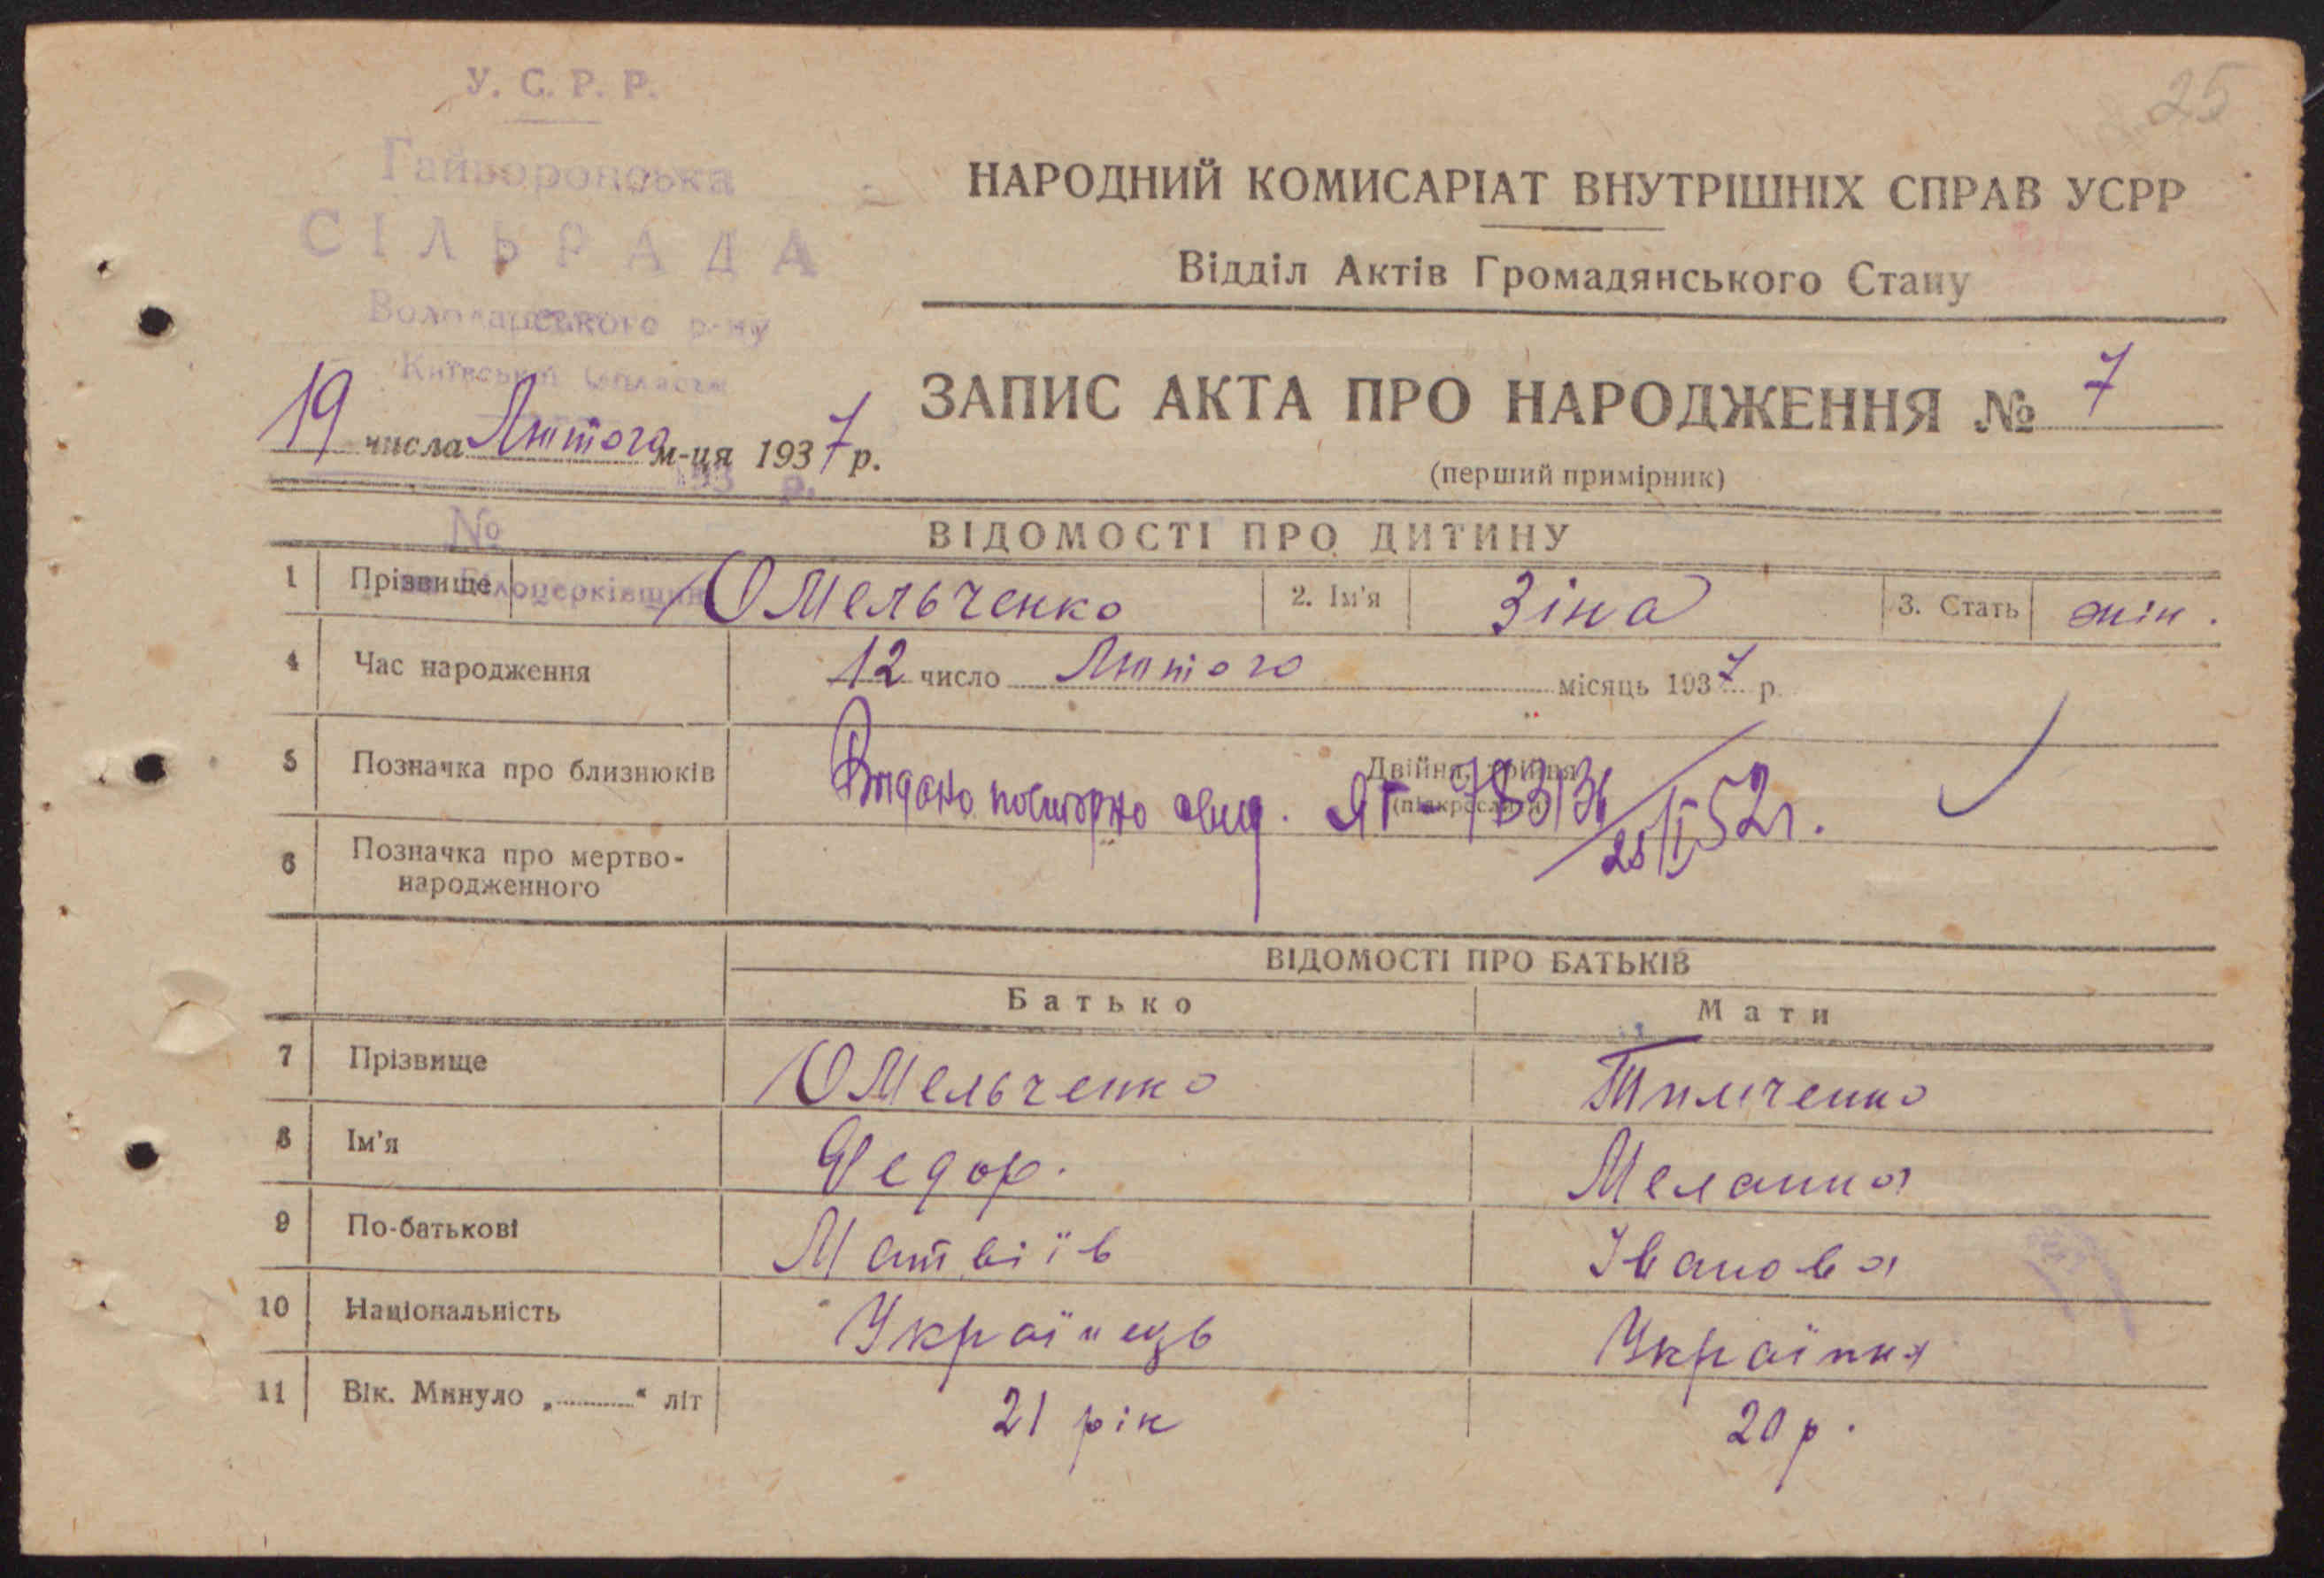 25
У. С. Р. Р.
Гайворонська
СІЛЬРАДА
Володарського р-ну
Київської області
193 р.
№
на Білоцерківщині
НАРОДНИЙ КОМИСАРІАТ ВНУТРІШНІХ СПРАВ УСРР
Відділ Актів Громадянського Стану
19 числа Лютого м-ця 1937 р.
ЗАПИС АКТА ПРО НАРОДЖЕННЯ № 7
(перший примірник)
ВІДОМОСТІ ПРО ДИТИНУ
1 Прізвище Омельченко 2. Ім'я Зіна 3. Стать жін.
4 Час народження 12 число Лютого місяць 1937 р.
5 Позначка про близнюків Двійня, трійня
(підкреслити)
Видано повторно свид. ЯГ 783136 25/II 52 г.
6 Позначка про мертво-
народженного
ВІДОМОСТІ ПРО БАТЬКІВ
Батько Мати
7 Прізвище Омельченко Тимченко
8 Ім'я Федор. Меланка
9 По-батькові Матвіїв Іванова
10 Національність Українець Українка
11 Вік. Минуло „ “ літ 21 рік 20 р.